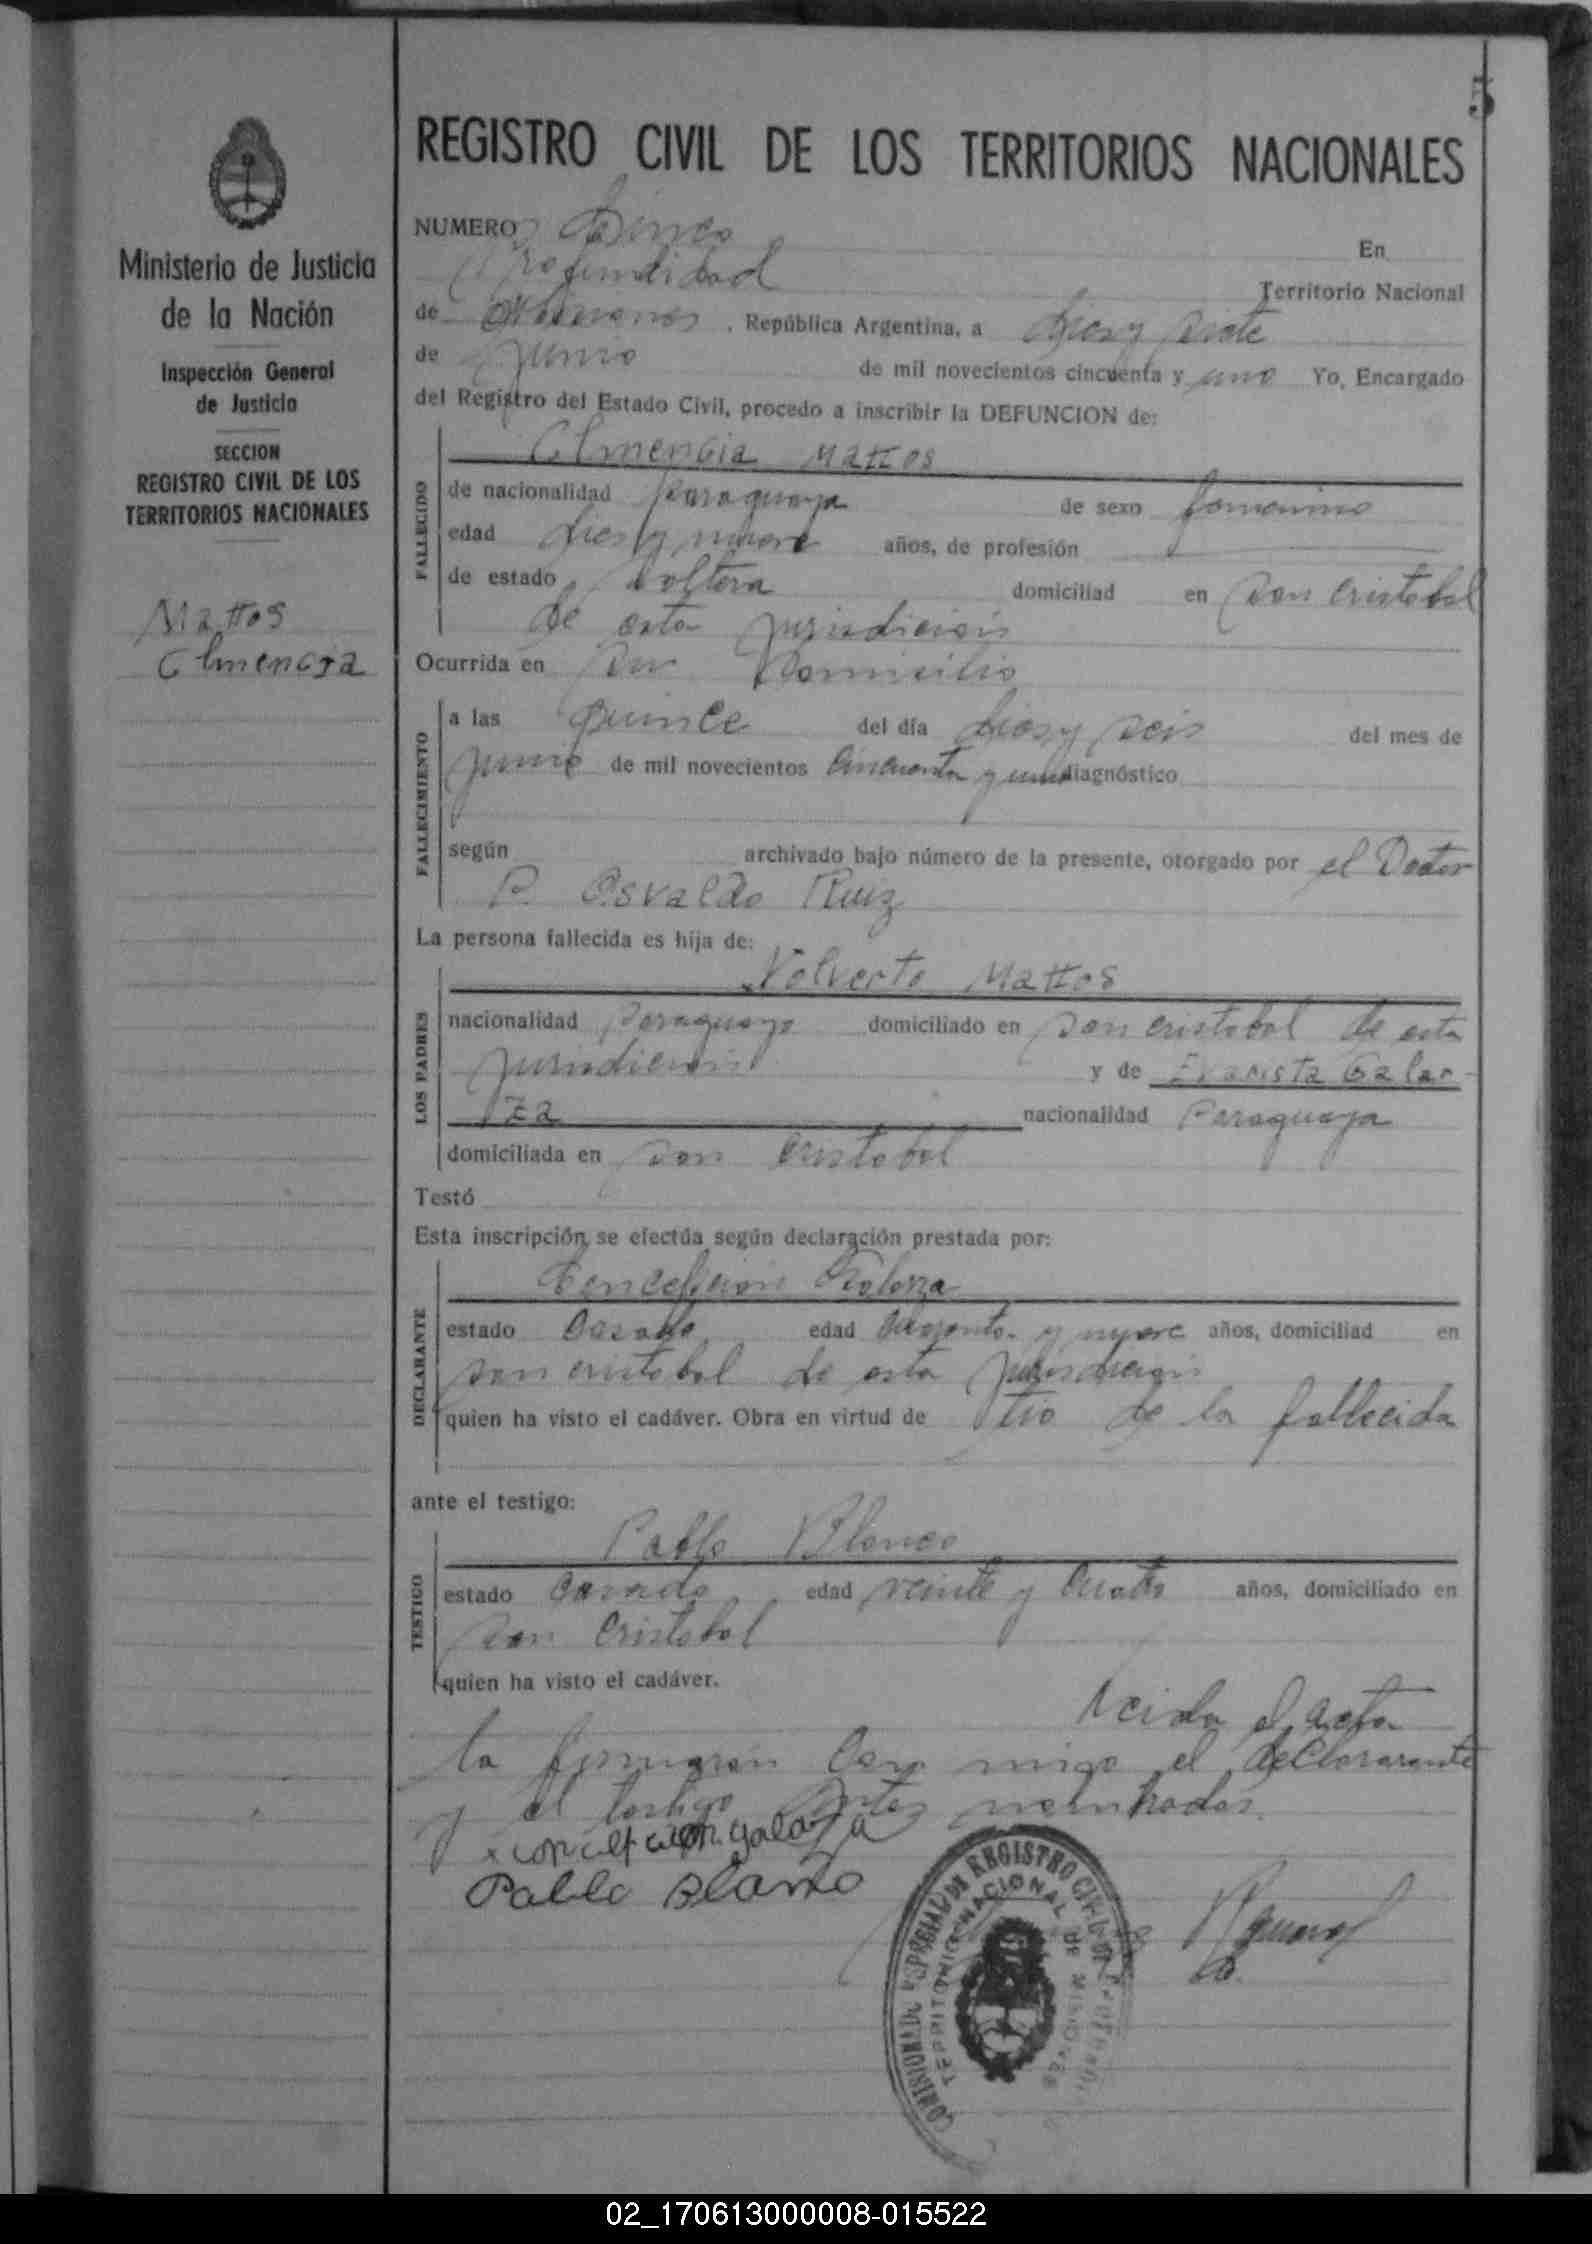 5
REGISTRO CIVIL DE LOS TERRITORIOS NACIONALES
Ministerio de Justicia
de la Nación
Inspección General
de Justicia
SECCION
REGISTRO CIVIL DE LOS
TERRITORIOS NACIONALES
Mattos
Clmencia
NUMERO Cinco En
Profundidad Territorio Nacional
de Misiones, República Argentina, a dies y siete
de Junio de mil novecientos cincuenta y uno Yo, Encargado
del Registro del Estado Civil, procedo a inscribir la DEFUNCION de:
FALLECIDO
Clmencia Mattos
de nacionalidad Paraguaya de sexo femenino
edad dies y nueve años, de profesión
de estado soltera domiciliad en san cristobal
de esta jurisdicion
Ocurrida en su Domicilio
FALLECIMIENTO
a las Quince del día dies y seis del mes de
junio de mil novecientos cincuenta y uno diagnóstico
según archivado bajo número de la presente, otorgado por el Doctor
P. Osvaldo Ruiz
La persona fallecida es hija de:
LOS PADRES
Nolverto Mattos
nacionalidad Paraguayo domiciliado en san cristobal de esta
jurisdicion y de Evarista Galar-
za nacionalidad Paraguaya
domiciliada en san cristobal
Testó
Esta inscripción se efectúa según declaración prestada por:
DECLARANTE
Concepcion Galarza
estado Casado edad y nueve años, domiciliad en
san cristobal de esta jurisdicion
quien ha visto el cadáver. Obra en virtud de tio de la fallecida
ante el testigo:
TESTIGO
Pablo Blanco
estado Casado edad veinte y cuatro años, domiciliado en
san cristobal
quien ha visto el cadáver.
Leida el acta
la firmaron con migo el declararante
y el testigo antes nombrados.
x concepcion galarza
Pablo Blanco
COMISIONADO ESPECIAL DE REGISTRO CIVIL DE PROFUNDIDAD
TERRITORIO NACIONAL DE MISIONES
02_170613000008-015522